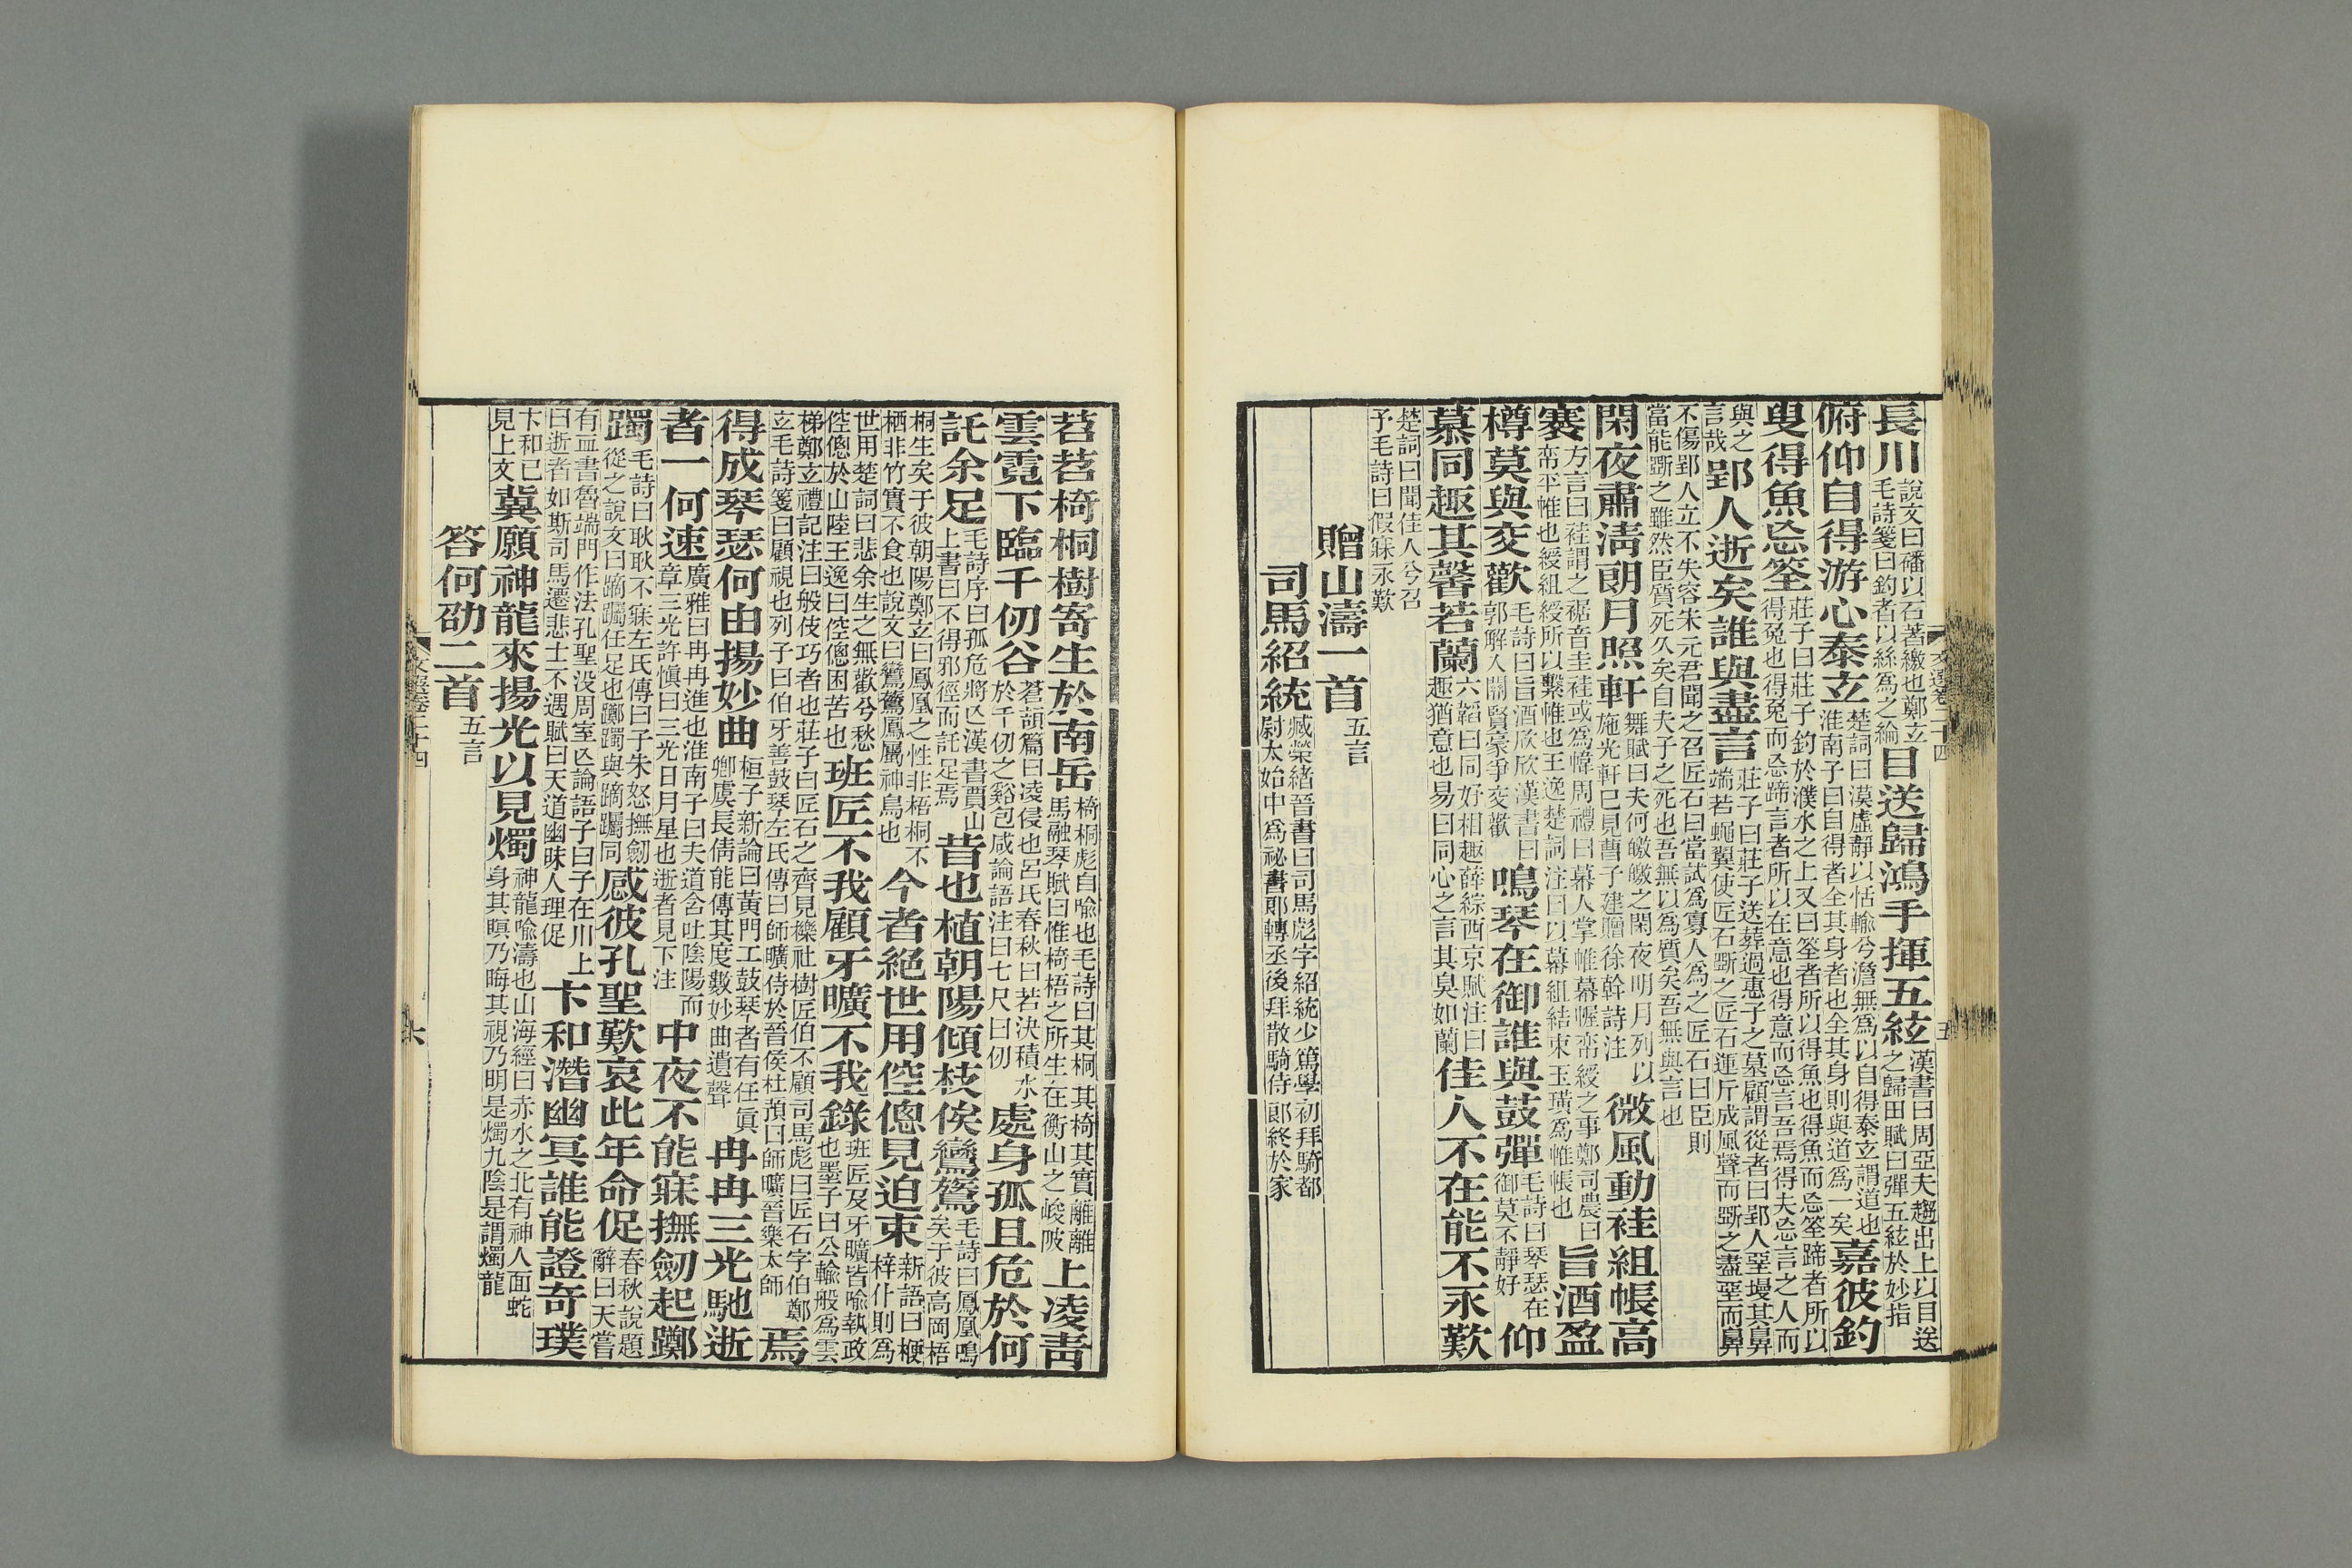 長川說文曰磻以石著繳也鄭玄毛詩箋曰釣者以絲為之綸目送歸鴻手揮五絃漢書曰周亞夫趨出上以目送之歸田賦曰彈五絃於妙指
俯仰自得游心泰玄楚詞曰漠虛靜以恬愉兮澹無為以自得泰玄謂道也淮南子曰自得者全其身者也全其身則與道為一矣嘉彼釣
叟得魚忘筌莊子曰莊子釣於濮水之上又曰筌者所以得魚也得魚而忘筌蹄者所以得兔也得兔而忘蹄言者所以在意也得意而忘言吾焉得夫忘言之人而
與之言哉郢人逝矣誰與盡言莊子曰莊子送葬過惠子之墓顧謂從者曰郢人堊墁其鼻端若蠅翼使匠石斲之匠石運斤成風聲而斲之盡堊而鼻
不傷郢人立不失容朱元君聞之召匠石曰當試為寡人為之匠石曰臣則當能斲之雖然臣質死久矣自夫子之死也吾無以為質矣吾無與言也
閑夜肅清朗月照軒舞賦曰夫何皦皦之閑夜明月列以施光軒已見曹子建贈徐幹詩注微風動袿組帳高
褰方言曰袿謂之裾音圭袿或為幃周禮曰幕人掌帷幕幄帟綬之事鄭司農曰帟平帷也綬組綬所以繫帷也王逸楚詞注曰以幕組結束玉璜為帷帳也旨酒盈
樽莫與交歡毛詩曰旨酒欣欣漢書曰郭解入關賢豪爭交歡鳴琴在御誰與鼓彈毛詩曰琴瑟在御莫不靜好仰
慕同趣其馨若蘭六韜曰同好相趣薛綜西京賦注曰趣猶意也易曰同心之言其臭如蘭佳人不在能不永歎
楚詞曰聞佳人兮召予毛詩曰假寐永歎
贈山濤一首五言
司馬紹統臧榮緒晉書曰司馬彪字紹統少篤學初拜騎都尉太始中為祕書郎轉丞後拜散騎侍郎終於家
苕苕椅桐樹寄生於南岳椅桐彪自喻也毛詩曰其桐其椅其實離離馬融琴賦曰惟椅梧之所生在衡山之峻陂上凌青
雲霓下臨千仞谷蒼頡篇曰凌侵也呂氏春秋曰若決積水於千仞之谿包咸論語注曰七尺曰仞處身孤且危於何
託余足毛詩序曰孤危將亡漢書賈山上書曰不得邪徑而託足焉昔也植朝陽傾枝俟鸞鷟毛詩曰鳳凰鳴矣于彼高岡梧
桐生矣于彼朝陽鄭玄曰鳳凰之性非梧桐不栖非竹實不食也說文曰鸞鷟鳳屬神鳥也今者絕世用倥傯見迫束新語曰楩梓仆則為
世用楚詞曰悲余生之無歡兮愁倥傯於山陸王逸曰倥傯困苦也班匠不我顧牙曠不我錄班匠及牙曠皆喻執政也墨子曰公輸般為雲
梯鄭玄禮記注曰般伎巧者也莊子曰匠石之齊見櫟社樹匠伯不顧司馬彪曰匠石字伯鄭玄毛詩箋曰顧視也列子曰伯牙善鼓琴左氏傳曰師曠侍於晉侯杜預曰師曠晉樂太師焉
得成琴瑟何由揚妙曲桓子新論曰黃門工鼓琴者有任真卿虞長倩能傳其度數妙曲遺聲冉冉三光馳逝
者一何速廣雅曰冉冉進也淮南子曰夫道含吐陰陽而章三光許慎曰三光日月星也逝者見下注中夜不能寐撫劒起躑
躅毛詩曰耿耿不寐左氏傳曰子朱怒撫劒從之說文曰蹢躅住足也躑躅與蹢躅同感彼孔聖歎哀此年命促春秋說題辭曰天嘗
有血書魯端門作法孔聖没周室亡論語子曰子在川上曰逝者如斯司馬遷悲士不遇賦曰天道幽昧人理促卞和潛幽冥誰能證奇璞
卞和已見上文冀願神龍來揚光以見燭神龍喻濤也山海經曰赤水之北有神人面蛇身其瞑乃晦其視乃明是燭九陰是謂燭龍
答何劭二首五言
文選卷二十四
六